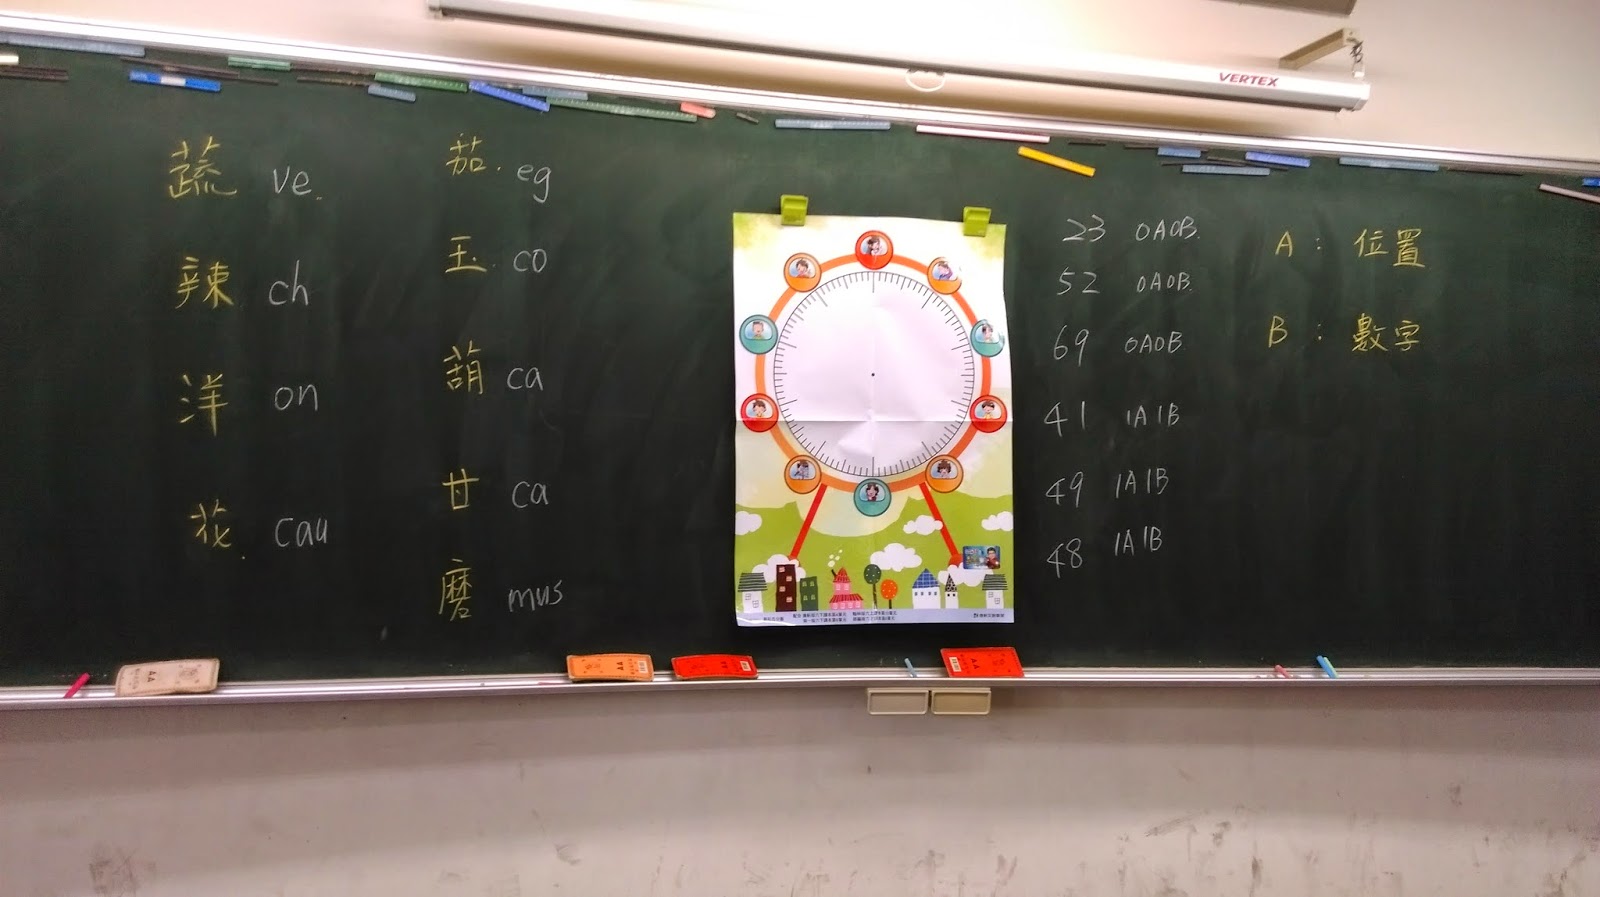 VERTEX
蔬 ve.
辣 ch
洋 on
花. cau
茄. eg
玉. co
葫 ca
甘 ca
磨 mus
23 0A0B.
52 0A0B.
69 0A0B
41 1A1B
49 1A1B
48 1A1B
A : 位置
B : 數字